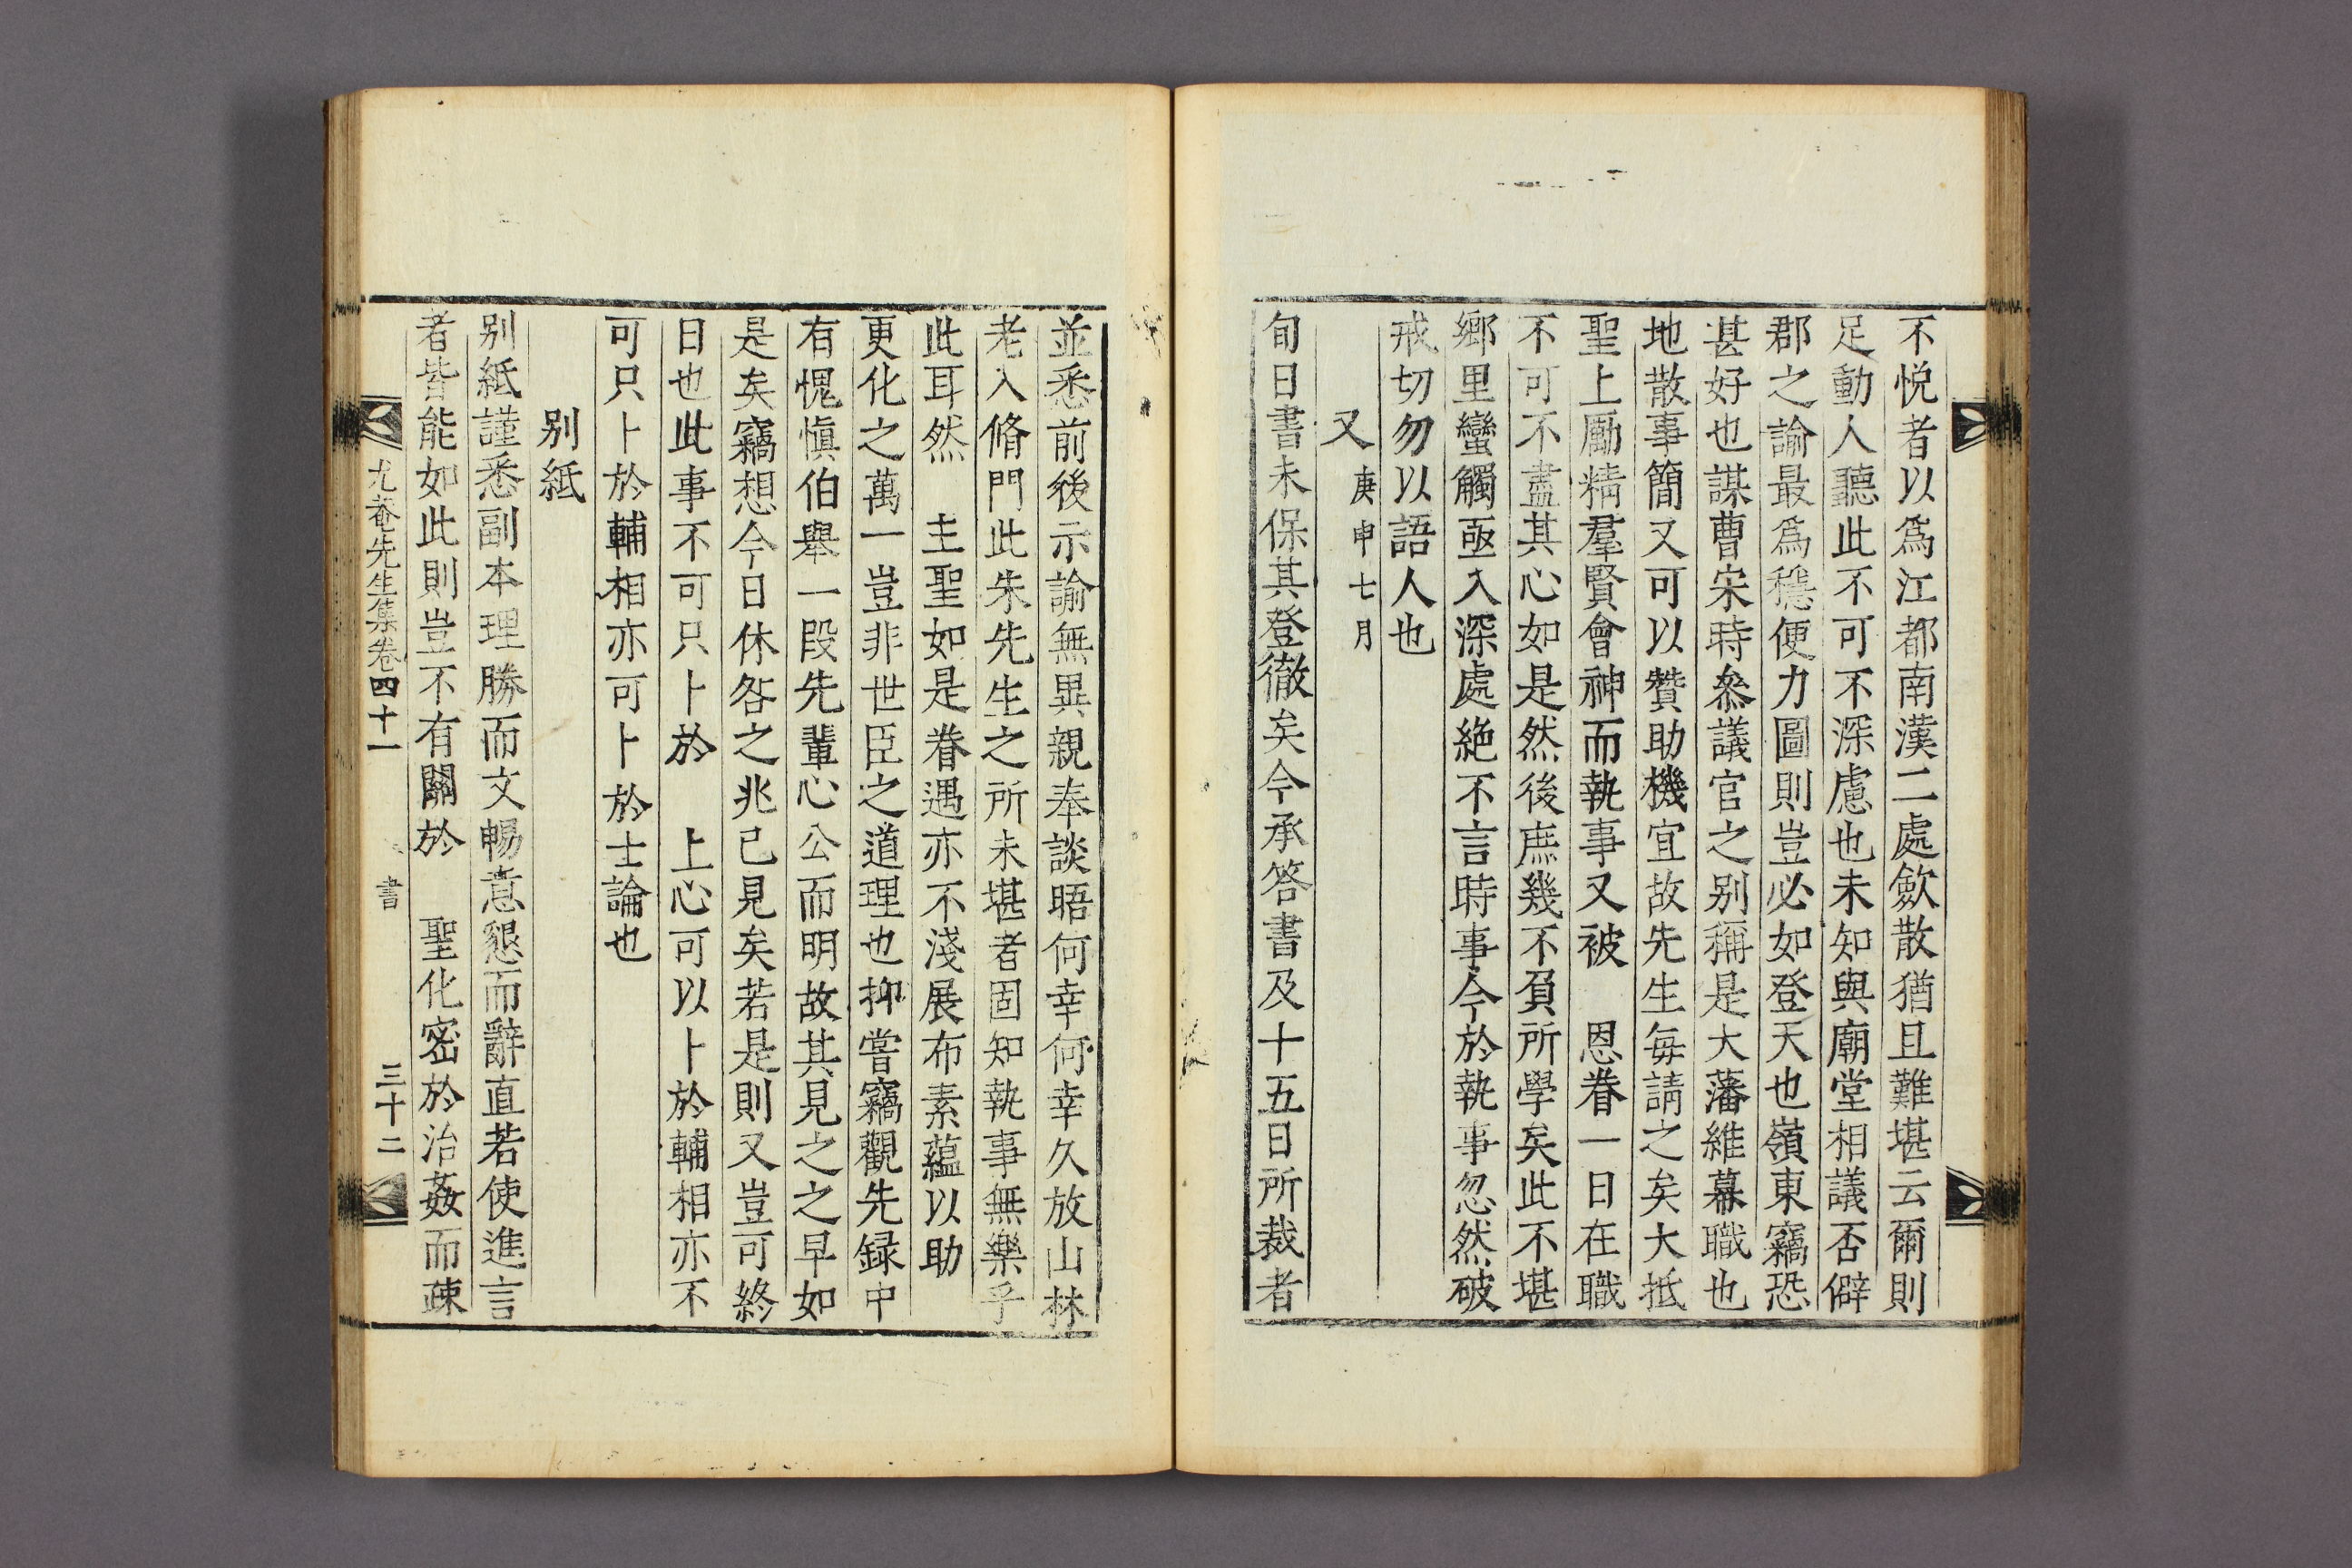 不悅者以爲江都南漢二處歛散猶且難堪云爾則
足動人聽此不可不深慮也未知與廟堂相議否僻
郡之論最爲穩便力圖則豈必如登天也嶺東竊恐
甚好也謀曹宋時叅議官之别稱是大藩維幕職也
地散事簡又可以贊助機宜故先生每請之矣大抵
聖上勵精羣賢會神而執事又被 恩眷一日在職
不可不盡其心如是然後庶幾不負所學矣此不堪
鄉里蠻觸亟入深處絶不言時事今於執事忽然破
戒切勿以語人也
又 庚申七月
旬日書未保其登徹矣今承答書及十五日所裁者
並悉前後示諭無異親奉談晤何幸何幸久放山林
老入脩門此朱先生之所未堪者固知執事無樂乎
此耳然 主聖如是眷遇亦不淺展布素蘊以助
更化之萬一豈非世臣之道理也抑嘗竊觀先録中
有愧愼伯舉一段先輩心公而明故其見之之早如
是矣竊想今日休咎之兆已見矣若是則又豈可終
日也此事不可只卜於 上心可以卜於輔相亦不
可只卜於輔相亦可卜於士論也
别紙
别紙謹悉副本理勝而文暢意懇而辭直若使進言
者皆能如此則豈不有關於 聖化密於治姦而疎
尤菴先生集卷四十一 書 三十二